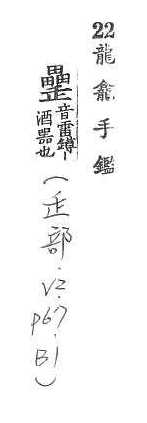 22 龍龕手鑑
音雷罇｜
酒器也
(部.V2.P67.B1)